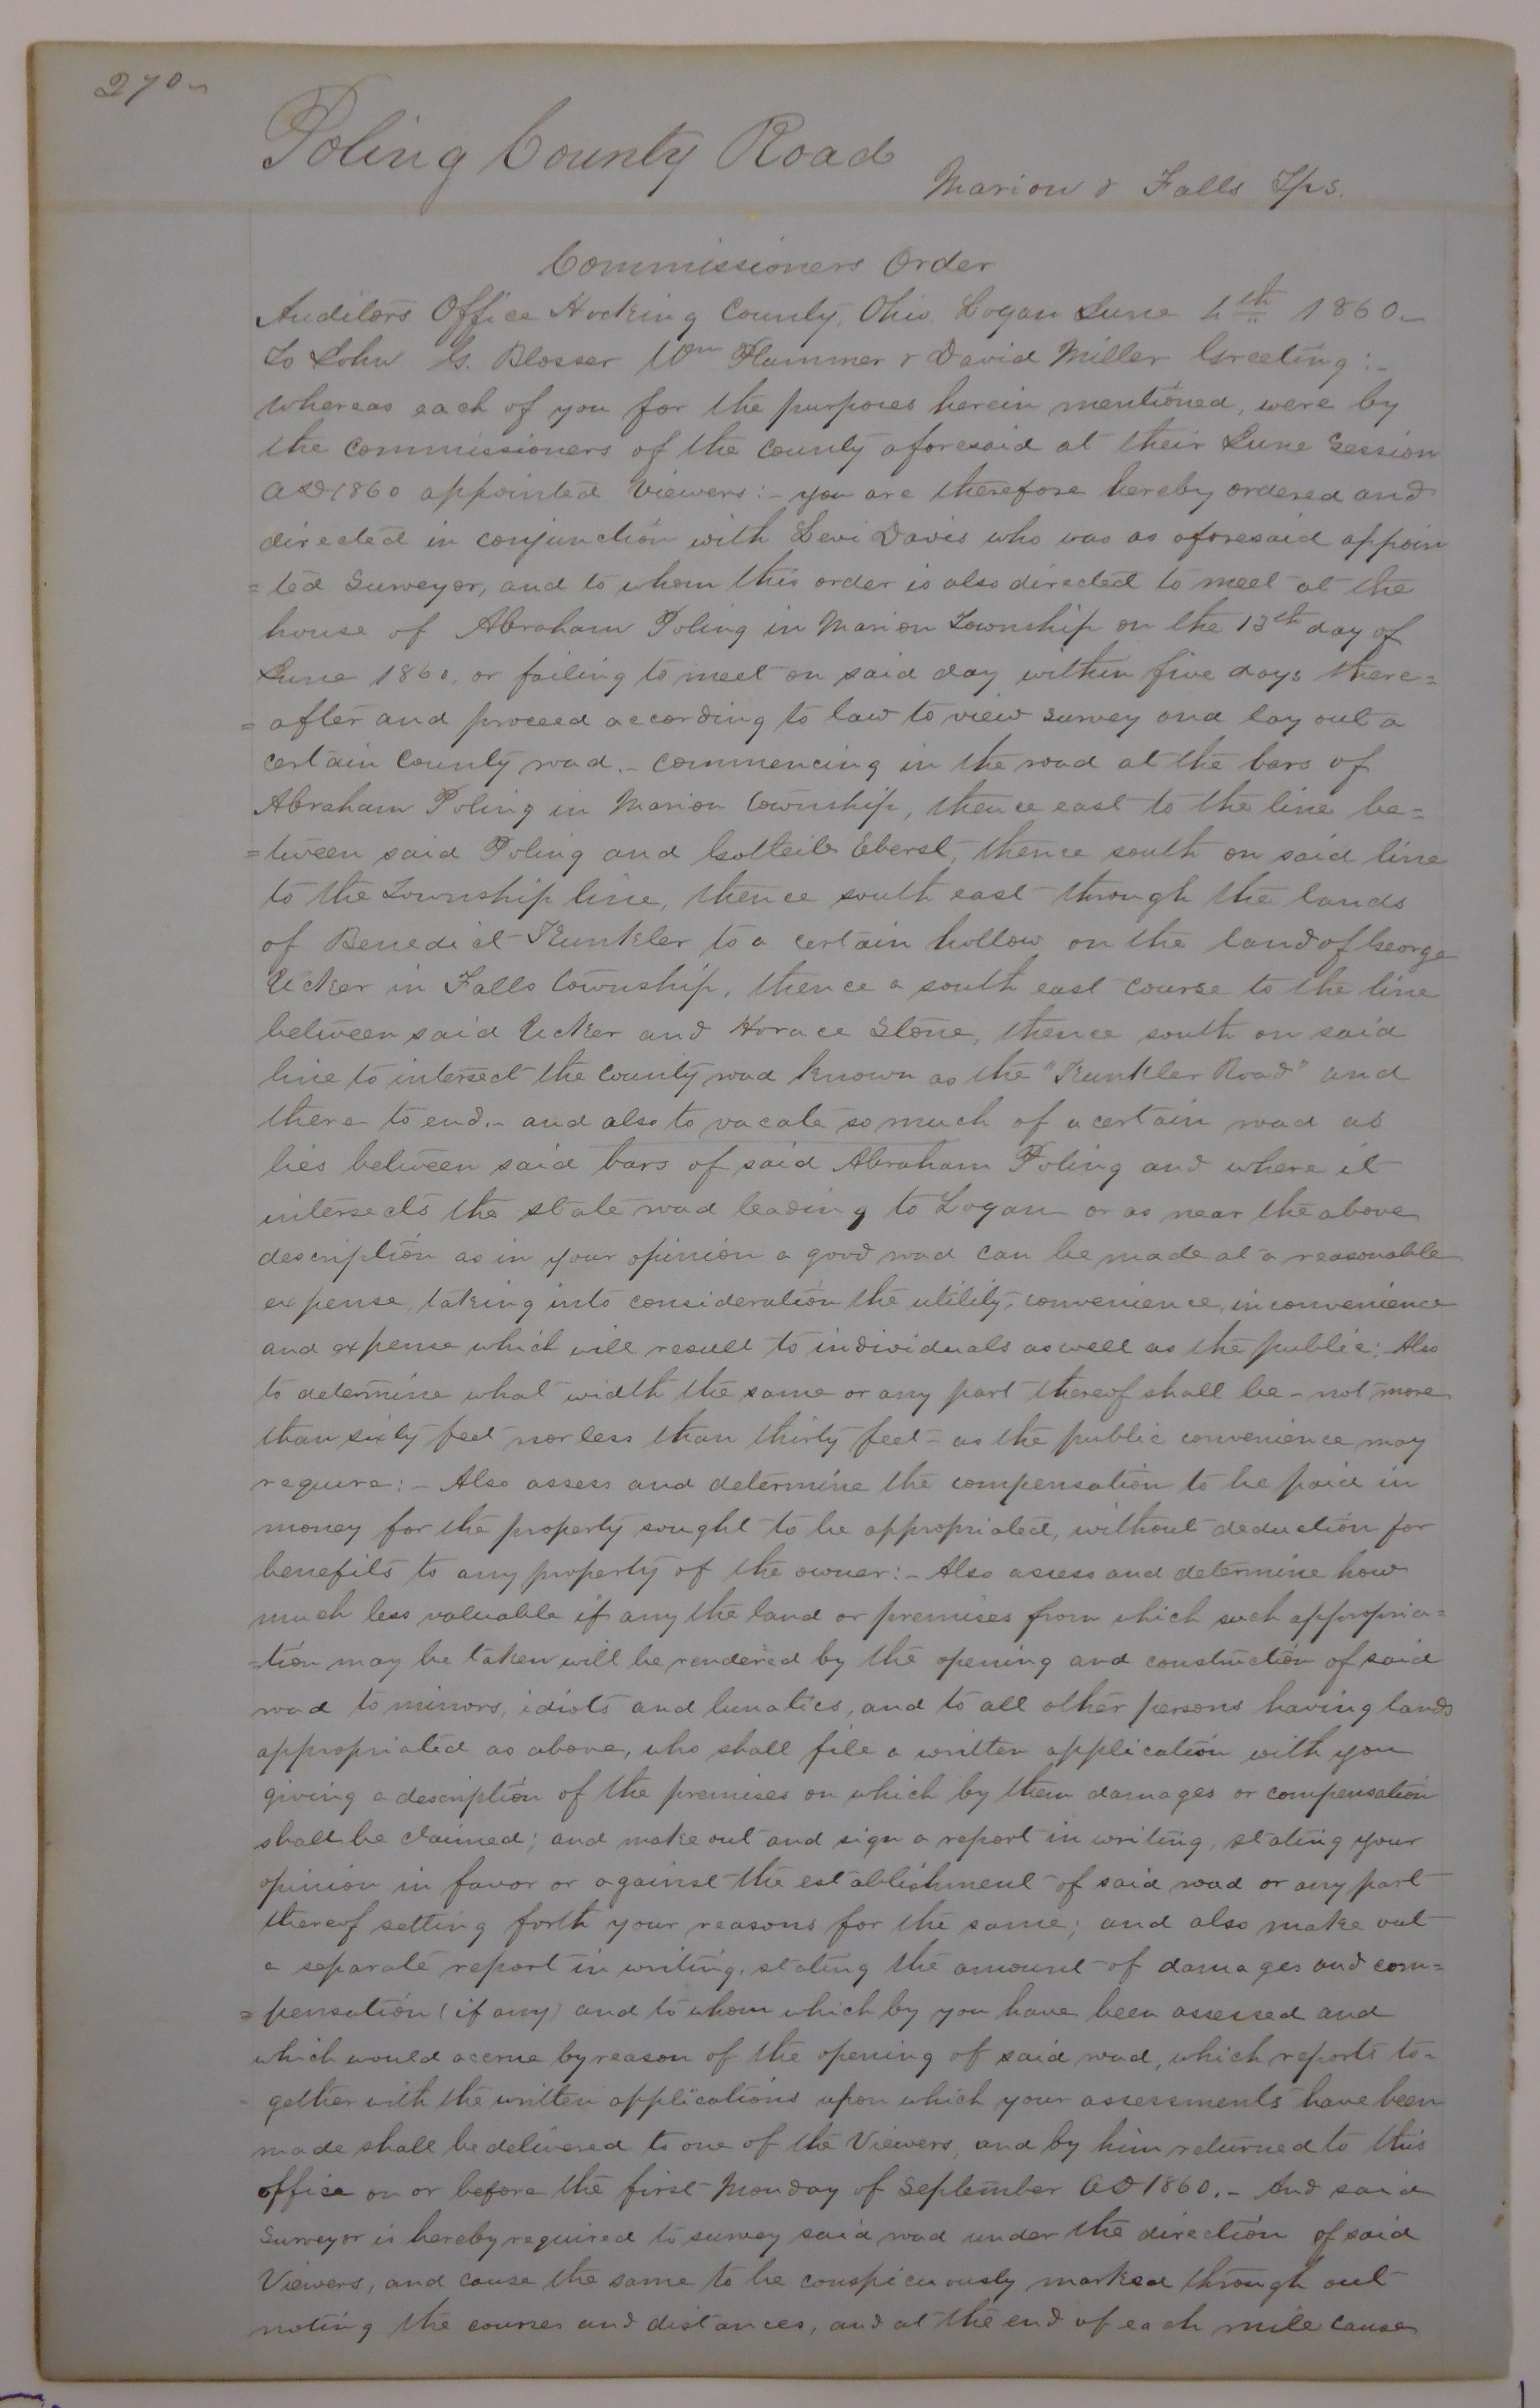 270
Poling County Road
Marion & Falls Tps.
Commissioners Order
Auditors Office Hocking County, Ohio. Logan June 4th 1860
To John G. Blosser Wm Plummer & David Miller Greeting:-
Whereas each of you for the purposes herein mentioned, were by
the commissioners of the county aforesaid at their June Session
AD 1860 appointed Viewers:- you are therefore hereby ordered and
directed in conjunction with Levi Davis who was as aforesaid appoin
=ted Surveyor, and to whom this order is also directed to meet at the
house of Abraham Poling in Marion Township on the 13th day of
June 1860, or failing to meet on said day within five days there=
=after and proceed according to law to view survey and lay out a
certain County road.- commencing in the road at the bars of
Abraham Poling in Marion township, thence east to the line be=
=tween said Poling and Gotteib Eberst, thence south on said line
to the Township line, thence south east through the lands
of Benedict Kunkler to a certain hollow on the land of George
Ucker in Falls township, thence a south east course to the line
between said Ucker and Horace Stone, thence south on said
line to intersect the County road known as the "Kunkler Road" and
there to end.- and also to vacate so much of a certain road as
lies between said bars of said Abraham Poling and where it
intersects the state road leading to Logan or as near the above
description as in your opinion a good road can be made at a reasonable
expense, taking into consideration the utility, convenience, inconvenience
and expense which will result to individuals as well as the public; Also
to determine what width the same or any part thereof shall be - not more
than sixty feet nor less than thirty feet - as the public convenience may
require:- Also assess and determine the compensation to be paid in
money for the property sought to be appropriated, without deduction for
benefits to any property of the owner:- Also assess and determine how
much less valuable if any the land or premises from which such appropria=
=tion may be taken will be rendered by the opening and construction of said
road to minors, idiots and lunatics, and to all other persons having lands
appropriated as above, who shall file a written application with you
giving a description of the premises on which by them damages or compensation
shall be claimed; and make out and sign a report in writing, stating your
opinion in favor or against the establishment of said road or any part
thereof setting forth your reasons for the same; and also make out
a separate report in writing, stating the amount of damages and com=
=pensation (if any) and to whom which by you have been assessed and
which would accrue by reason of the opening of said road, which reports to=
-gether with the written applications upon which your assessments have been
made shall be delivered to one of the Viewers, and by him returned to this
office on or before the first Monday of September AD 1860.- And said
Surveyor is hereby required to survey said road under the direction of said
Viewers, and cause the same to be conspicuously marked through out
noting the courses and distances, and at the end of each mile cause